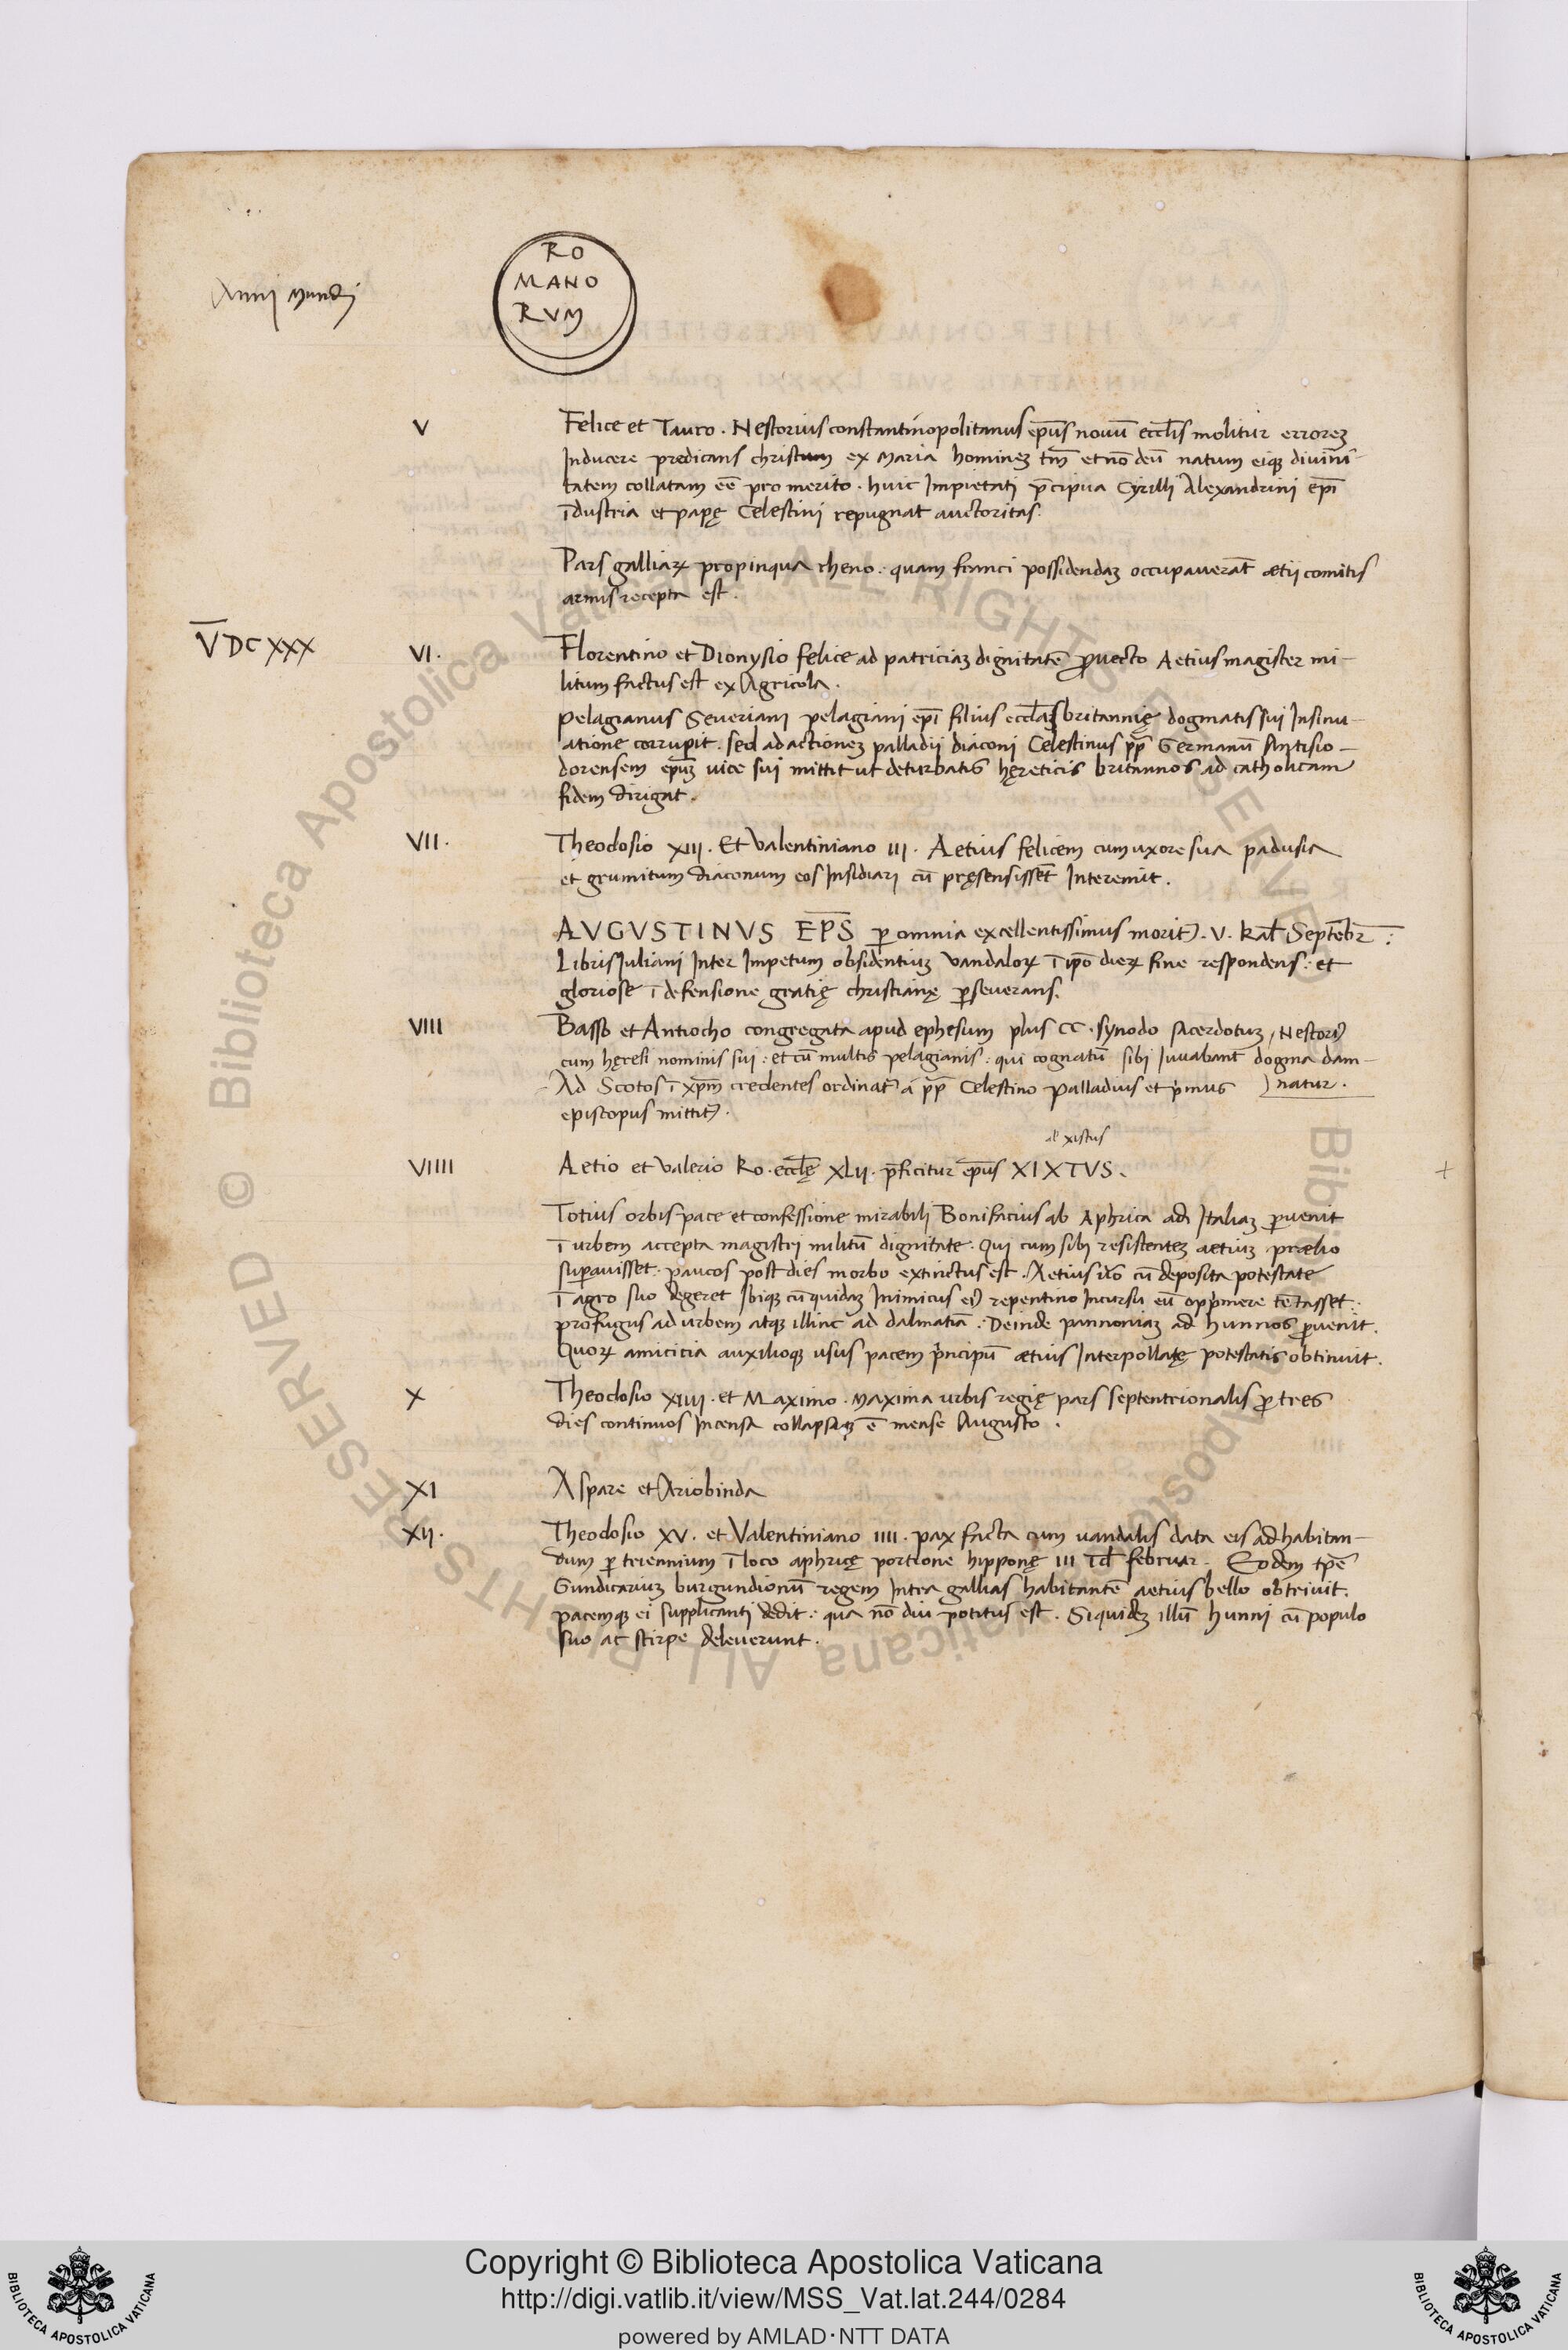 RO
MANO
RVM
Anni Mundi
V Felice et Tauro . Nestorius constantinopolitanus ep̅us nouu̅ eccl̅is molitur erroreꝫ
Inducere predicans christum ex Maria homineꝫ tm̅ et no̅ deu̅ natum eiqꝫ diuini-
tatem collatam ee̅ pro merito . huic Impietati p̅cipua Cyrilli Alexandrini ep̅i
ı̅dustria et papę Celestini repugnat auctoritas .
Pars galliaꝝ propinqua rheno : quam franci possidendaꝫ occupauerat̅ aetij comitis
armis recepta est .
V̅DCXXX VI . Florentino et Dionysio felice ad patriciaꝫ dignitate̅ ꝓuecto Aetius magister mi-
litum factus est ex Agricola .
pelagianus Seueriani pelagiani ep̅i filius eccl̅as britannię dogmatis sui Insinu-
atione corrupit . sed ad actioneꝫ palladij diaconi Celestinus pp̅ Germanu̅ Antisio-
dorensem ep̅uꝫ uice sui mittit ut deturbatis hęreticis britannos ad catholicam
fidem dirigat .
VII . Theodosio XIII . Et Valentiniano III . Aetius felicem cum uxore sua padusia
et grumitum diaconum eos Insidiari cu̅ pręsensisset Interemit .
AVGVSTINVS EP̅S ꝑ omnia excellentissimus morit᷒ . V . kal̅ Septe̅br̅ :
Libris Juliani Inter Impetum obsidentiuꝫ Vandaloꝝ ı̅ ip̅o dieꝝ fine respondens : et
gloriose ı̅ defensione gratię christianę ꝑseuerans .
VIII Basso et Antiocho congregata apud ephesum plus CC . synodo sacerdotuꝫ , Nestori᷒
cum hęresi nominis sui : et cu̅ multis pelagianis : qui cognatu̅ sibi Iuuabant dogma dam-
natur .
Ad Scotos ı̅ xp̅m credentes ordinat᷒ a pp̅ Celestino palladius et p̍mus
episcopus mittit᷒ .
al xistus
VIIII Aetio et Valerio Ro . eccl̅ę XLII . p̅ficitur ep̅us XIXTVS .
+
Totius orbis pace et confessione mirabili Bonifacius ab Aphrica ad Italiaꝫ ꝑuenit
ı̅ urbem accepta magistri militu̅ dignitate . Qui cum sibi resistenteꝫ aetiuꝫ prælio
suꝑauisset . paucos post dies morbo extinctus est . Aetius u̍o cu̅ deposita potestate
ı̅ agro suo degeret Ibiqꝫ cu̅ quidaꝫ Inimicus ei᷒ repentino Incursu eu̅ opp̍mere te̅tasset :
profugus ad urbem atqꝫ illinc ad dalmatia̅ : Deinde pannoniaꝫ ad hunnos ꝑuenit .
Quoꝝ amicicia auxilioqꝫ usus pacem p̍ncipu̅ aetius Interpollatę potestatis obtinuit .
X Theodosio XIIII . et Maximo . Maxima urbis regię pars septentrionalis ꝑ tres
dies continuos Incensa collapsaqꝫ e̅ mense Augusto .
XI Aspare et Ariobinda
XII . Theodosio XV . et Valentiniano IIII . pax facta cum uandalis data eis ad habitan-
dum ꝑ triennium ı̅ loco aphricę portione hipponę III Id̅ februar . Eodem tp̅e
Gundicariuꝫ burgundionu̅ regem Intra gallias habitante̅ aetius bello obtriuit .
pacemqꝫ ei supplicanti dedit : qua no̅ diu potitus est . Siquideꝫ illu̅ hunni cu̅ populo
suo ac stirpe deleuerunt .
© Biblioteca Apostolica Vaticana ALL RIGHTS RESERVED
Copyright © Biblioteca Apostolica Vaticana
http://digi.vatlib.it/view/MSS_Vat.lat.244/0284
powered by AMLAD·NTT DATA
BIBLIOTECA APOSTOLICA VATICANA
BIBLIOTECA APOSTOLICA VATICANA